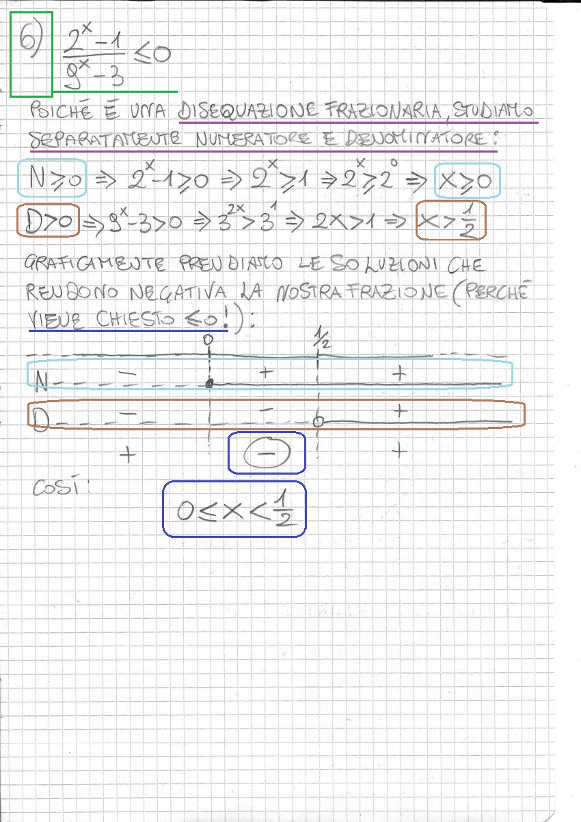 6) (2^x - 1)/(9^x - 3) ≤ 0
POICHÉ È UNA DISEQUAZIONE FRAZIONARIA, STUDIAMO
SEPARATAMENTE NUMERATORE E DENOMINATORE:
N≥0 ⇒ 2^x-1≥0 ⇒ 2^x≥1 ⇒ 2^x≥2^0 ⇒ x≥0
D>0 ⇒ 9^x-3>0 ⇒ 3^2x>3^1 ⇒ 2x>1 ⇒ x>1/2
GRAFICAMENTE PRENDIAMO LE SOLUZIONI CHE
RENDONO NEGATIVA LA NOSTRA FRAZIONE (PERCHÉ
VIENE CHIESTO ≤0!):
0 1/2
N - + +
D - - +
+ - +
COSÌ:
0≤x<1/2